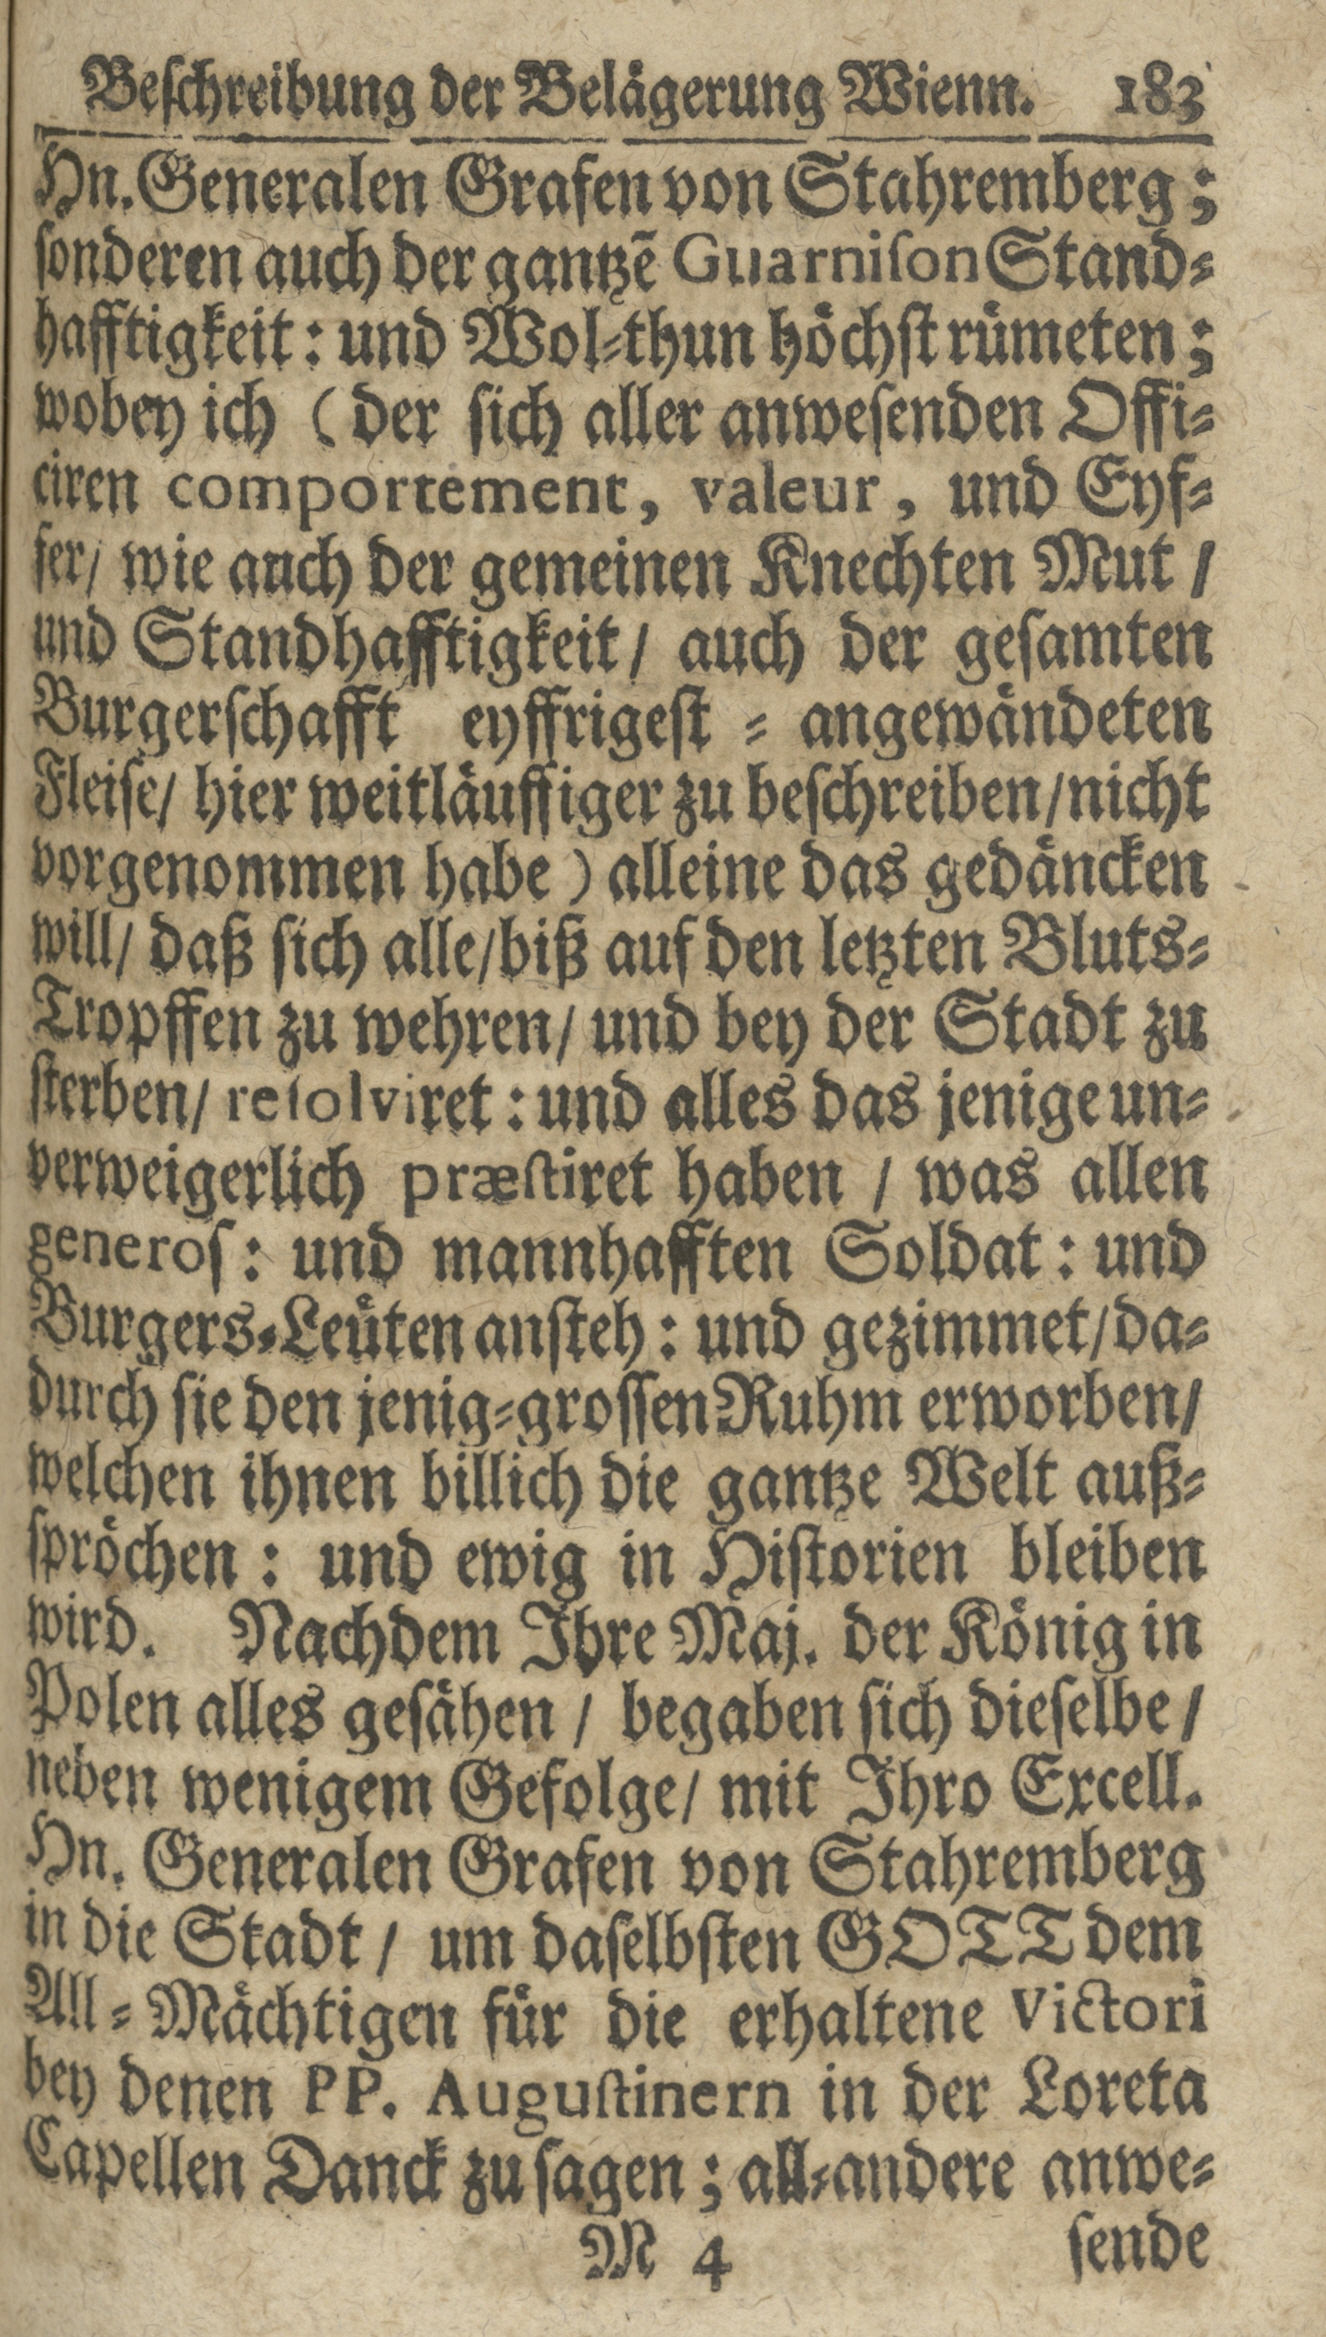 Beſchreibung der Belägerung Wienn. 183
Hn. Generalen Grafen von Stahremberg;
ſonderen auch der gantzē Guarniſon Stand⸗
hafftigkeit: und Wol⸗thun höchſt rümeten;
wobey ich (der ſich aller anweſenden Offi⸗
ciren comportement, valeur, und Eyf⸗
fer/ wie auch der gemeinen Knechten Mut /
und Standhafftigkeit/ auch der geſamten
Burgerſchafft eyffrigeſt ⸗ angewändeten
Fleiſe/ hier weitläuffiger zu beſchreiben/nicht
vorgenommen habe) alleine das gedäncken
will/ daß ſich alle/biß auf den letzten Bluts⸗
Tropffen zu wehren/ und bey der Stadt zu
ſterben/ reſolviret: und alles das jenige un⸗
verweigerlich præſtiret haben / was allen
generoſ: und mannhafften Soldat: und
Burgers⸗Leüten anſteh: und gezimmet/da⸗
durch ſie den jenig⸗groſſen Ruhm erworben/
welchen ihnen billich die gantze Welt auß⸗
ſpröchen: und ewig in Hiſtorien bleiben
wird. Nachdem Ihre Maj. der König in
Polen alles geſähen / begaben ſich dieſelbe/
neben wenigem Gefolge/ mit Ihro Excell.
Hn. Generalen Grafen von Stahremberg
in die Stadt/ um daſelbſten GOTT dem
All⸗Mächtigen für die erhaltene Victori
bey denen PP. Auguſtinern in der Loreta
Capellen Danck zu ſagen; all⸗andere anwe⸗
M 4 ſende